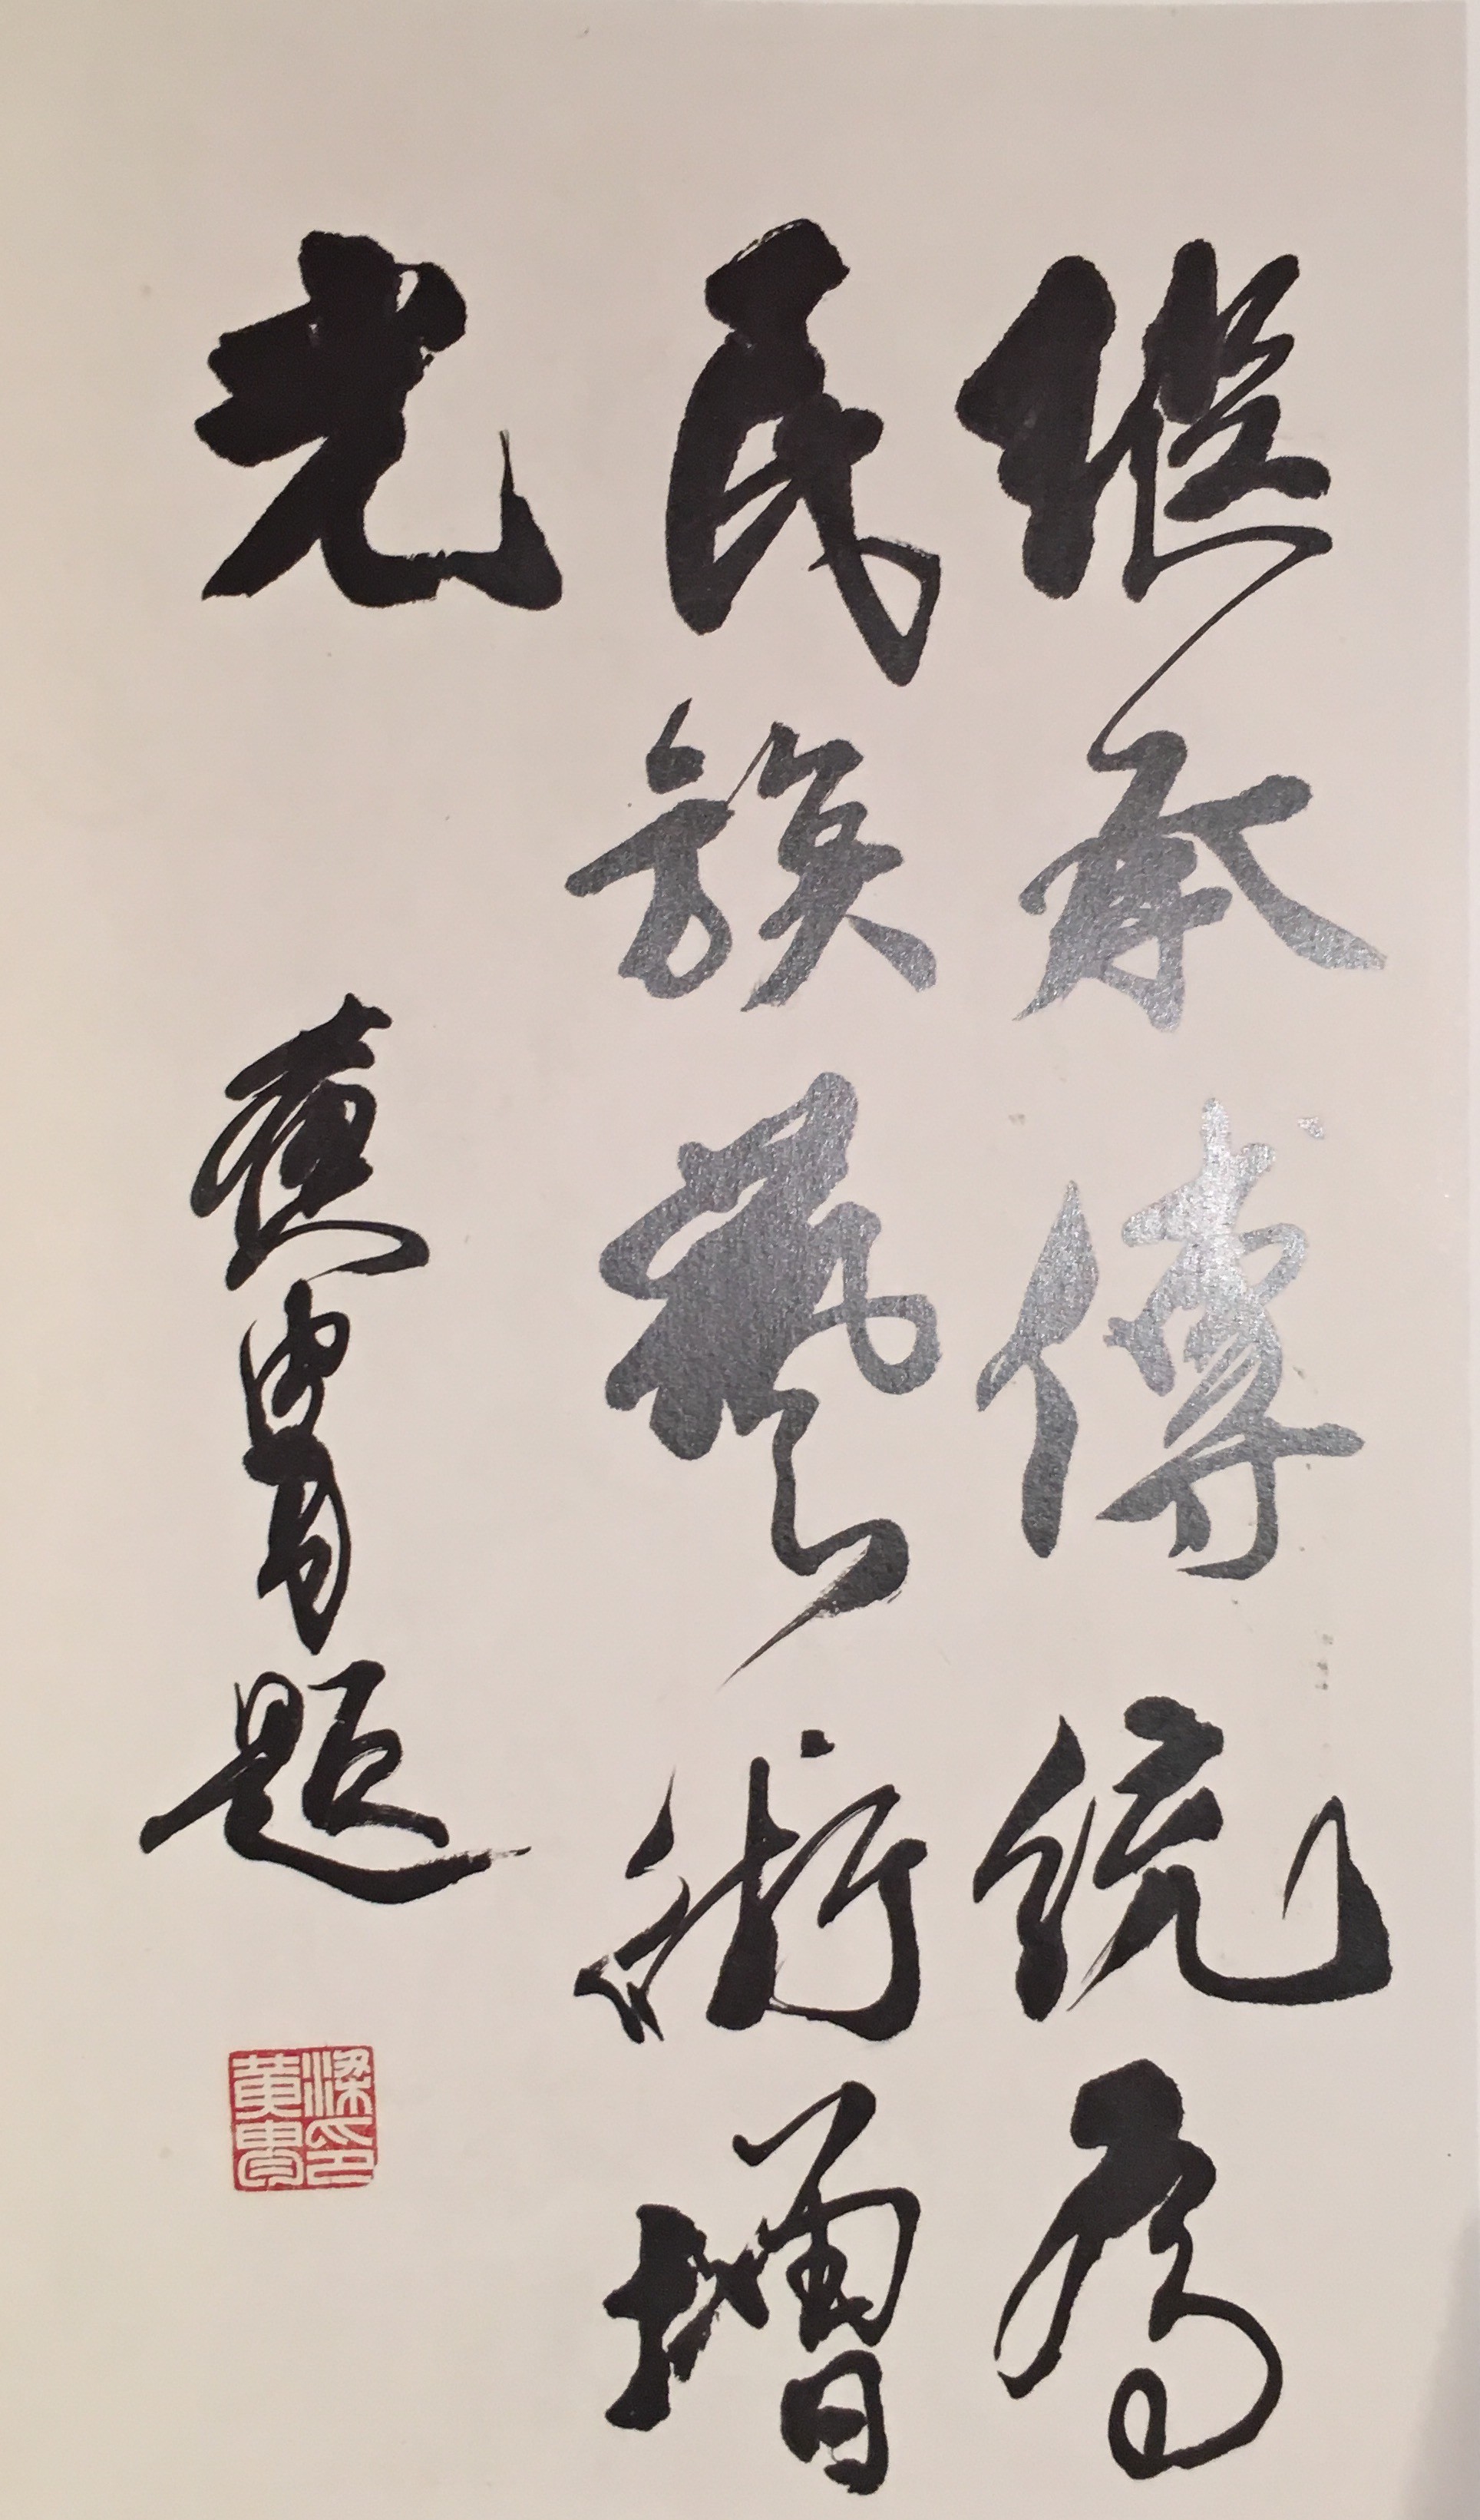 繼承傳統為
民族藝術增
光
黄胄題
梁印
黄胄